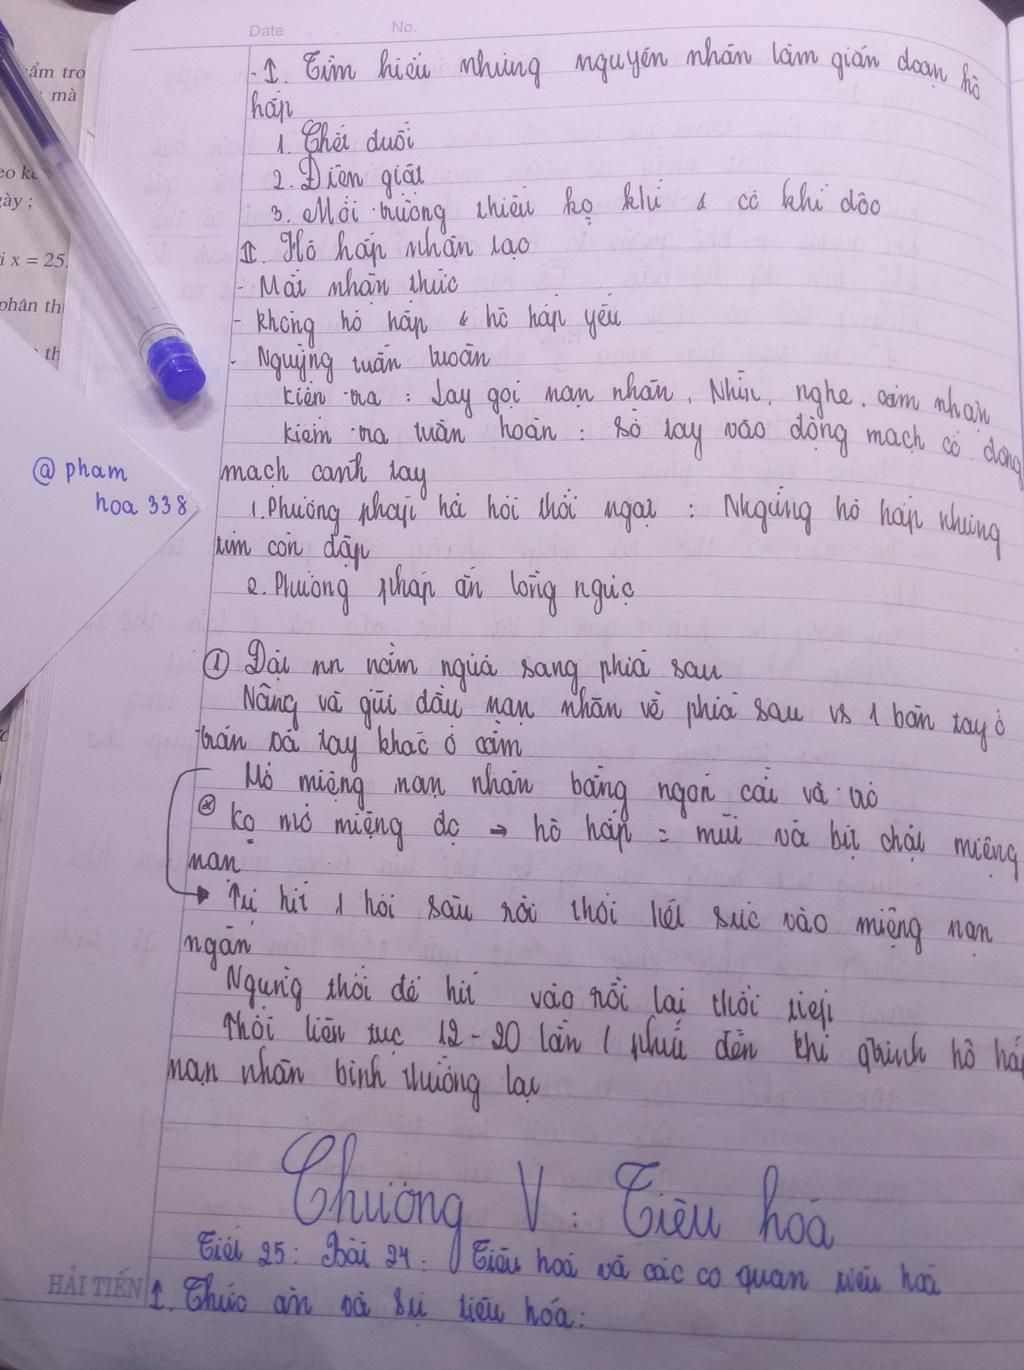 Date . . . No.
- I. Tìm hiểu những nguyên nhân làm gián đoạn hô
hấp
1. Chết đuối
2. Điện giật
3. Môi trường thiếu ko khí & có khí độc
II. Hô hấp nhân tạo
- Mất nhận thức
- Không hô hấp & hô hấp yếu
- Ngưng tuần hoàn
Kiểm tra : Lay gọi nạn nhân, Nhìn, nghe, cảm nhận
Kiểm tra tuần hoàn : Sờ tay vào động mạch cổ, động
mạch cánh tay
1. Phương pháp hà hơi thổi ngạt : Ngừng hô hấp nhưng
tim còn đập
2. Phương pháp ấn lồng ngực
① Đặt nn nằm ngửa sang phía sau
Nâng và gửi đầu nạn nhân về phía sau vs 1 bàn tay ở
trán và tay khác ở cằm
Mở miệng nạn nhân bằng ngón cái và trỏ
ko mở miệng đc → hô hấp = mũi và bịt chặt miệng
nạn
Tự hít 1 hơi sâu rồi thổi hết sức vào miệng nạn
ngân
Ngưng thổi để hít vào rồi lại thổi tiếp
Thổi liên tục 12 - 20 lần / phút đến khi qtrình hô hấ
nạn nhân bình thường lại
Chương V : Tiêu hoá
Tiết 25 : Bài 24 : Tiêu hoá và các cơ quan tiêu hoá
I. Thức ăn và sự tiêu hóa :
HẢI TIẾN
@ pham
hoa 338
ẩm tro
mà
eo k
gày ;
i x = 25.
phân th
th